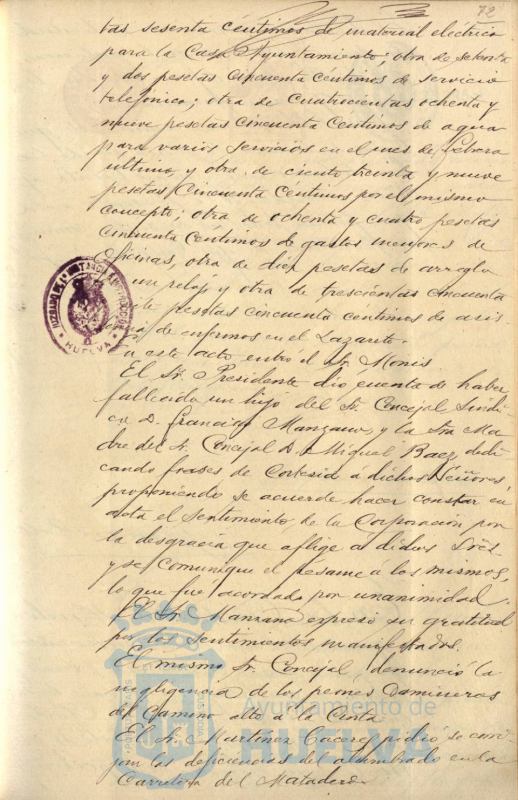 72
tas sesenta céntimos de material electrico
para la Casa Ayuntamiento; otra de setenta
y dos pesetas cincuenta centimos de servicio
telefónico; otra de cuatrocientas ochenta y
nueve pesetas cincuenta centimos de agua
para varios servicios en el mes de Febrero
último, y otra de ciento treinta y nueve
pesetas cincuenta céntimos por el mismo
concepto; otra de ochenta y cuatro pesetas
cincuenta céntimos de gastos menores de
oficinas, otra de diez pesetas de arreglo
un reloj y otra de trescientas cincuenta
pesetas cincuenta centimos de asis
de enfermos en el Lazareto.
en este acto entró el Sr. Monis
El Sr. Presidente dió cuenta de haber
fallecido un hijo del Sr. Concejal Sindi
co D. Francisco Manzano, y la Sra Ma
dre del Sr. Concejal D. Miguel Baez, dedi
cando frases de cortesia á dichos Señores,
proponiendo se acuerde hacer constar en
acta el sentimiento de la Corporación por
la desgracia que aflige a dichos Sres
y se comunique el pésame á los mismos,
lo que fue acordado por unanimidad.
El Sr. Manzano expresó su gratitud
por los sentimientos manifestados.
El mismo Sr. Concejal, denunció la
negligencia de los peones camineros
del camino alto á la Cinta
El Sr. Martinez Caceres pidió se corri
jan las deficiencias del alumbrado en la
Carretera del Matadero
HUELVA
Ayuntamiento de
HUELVA